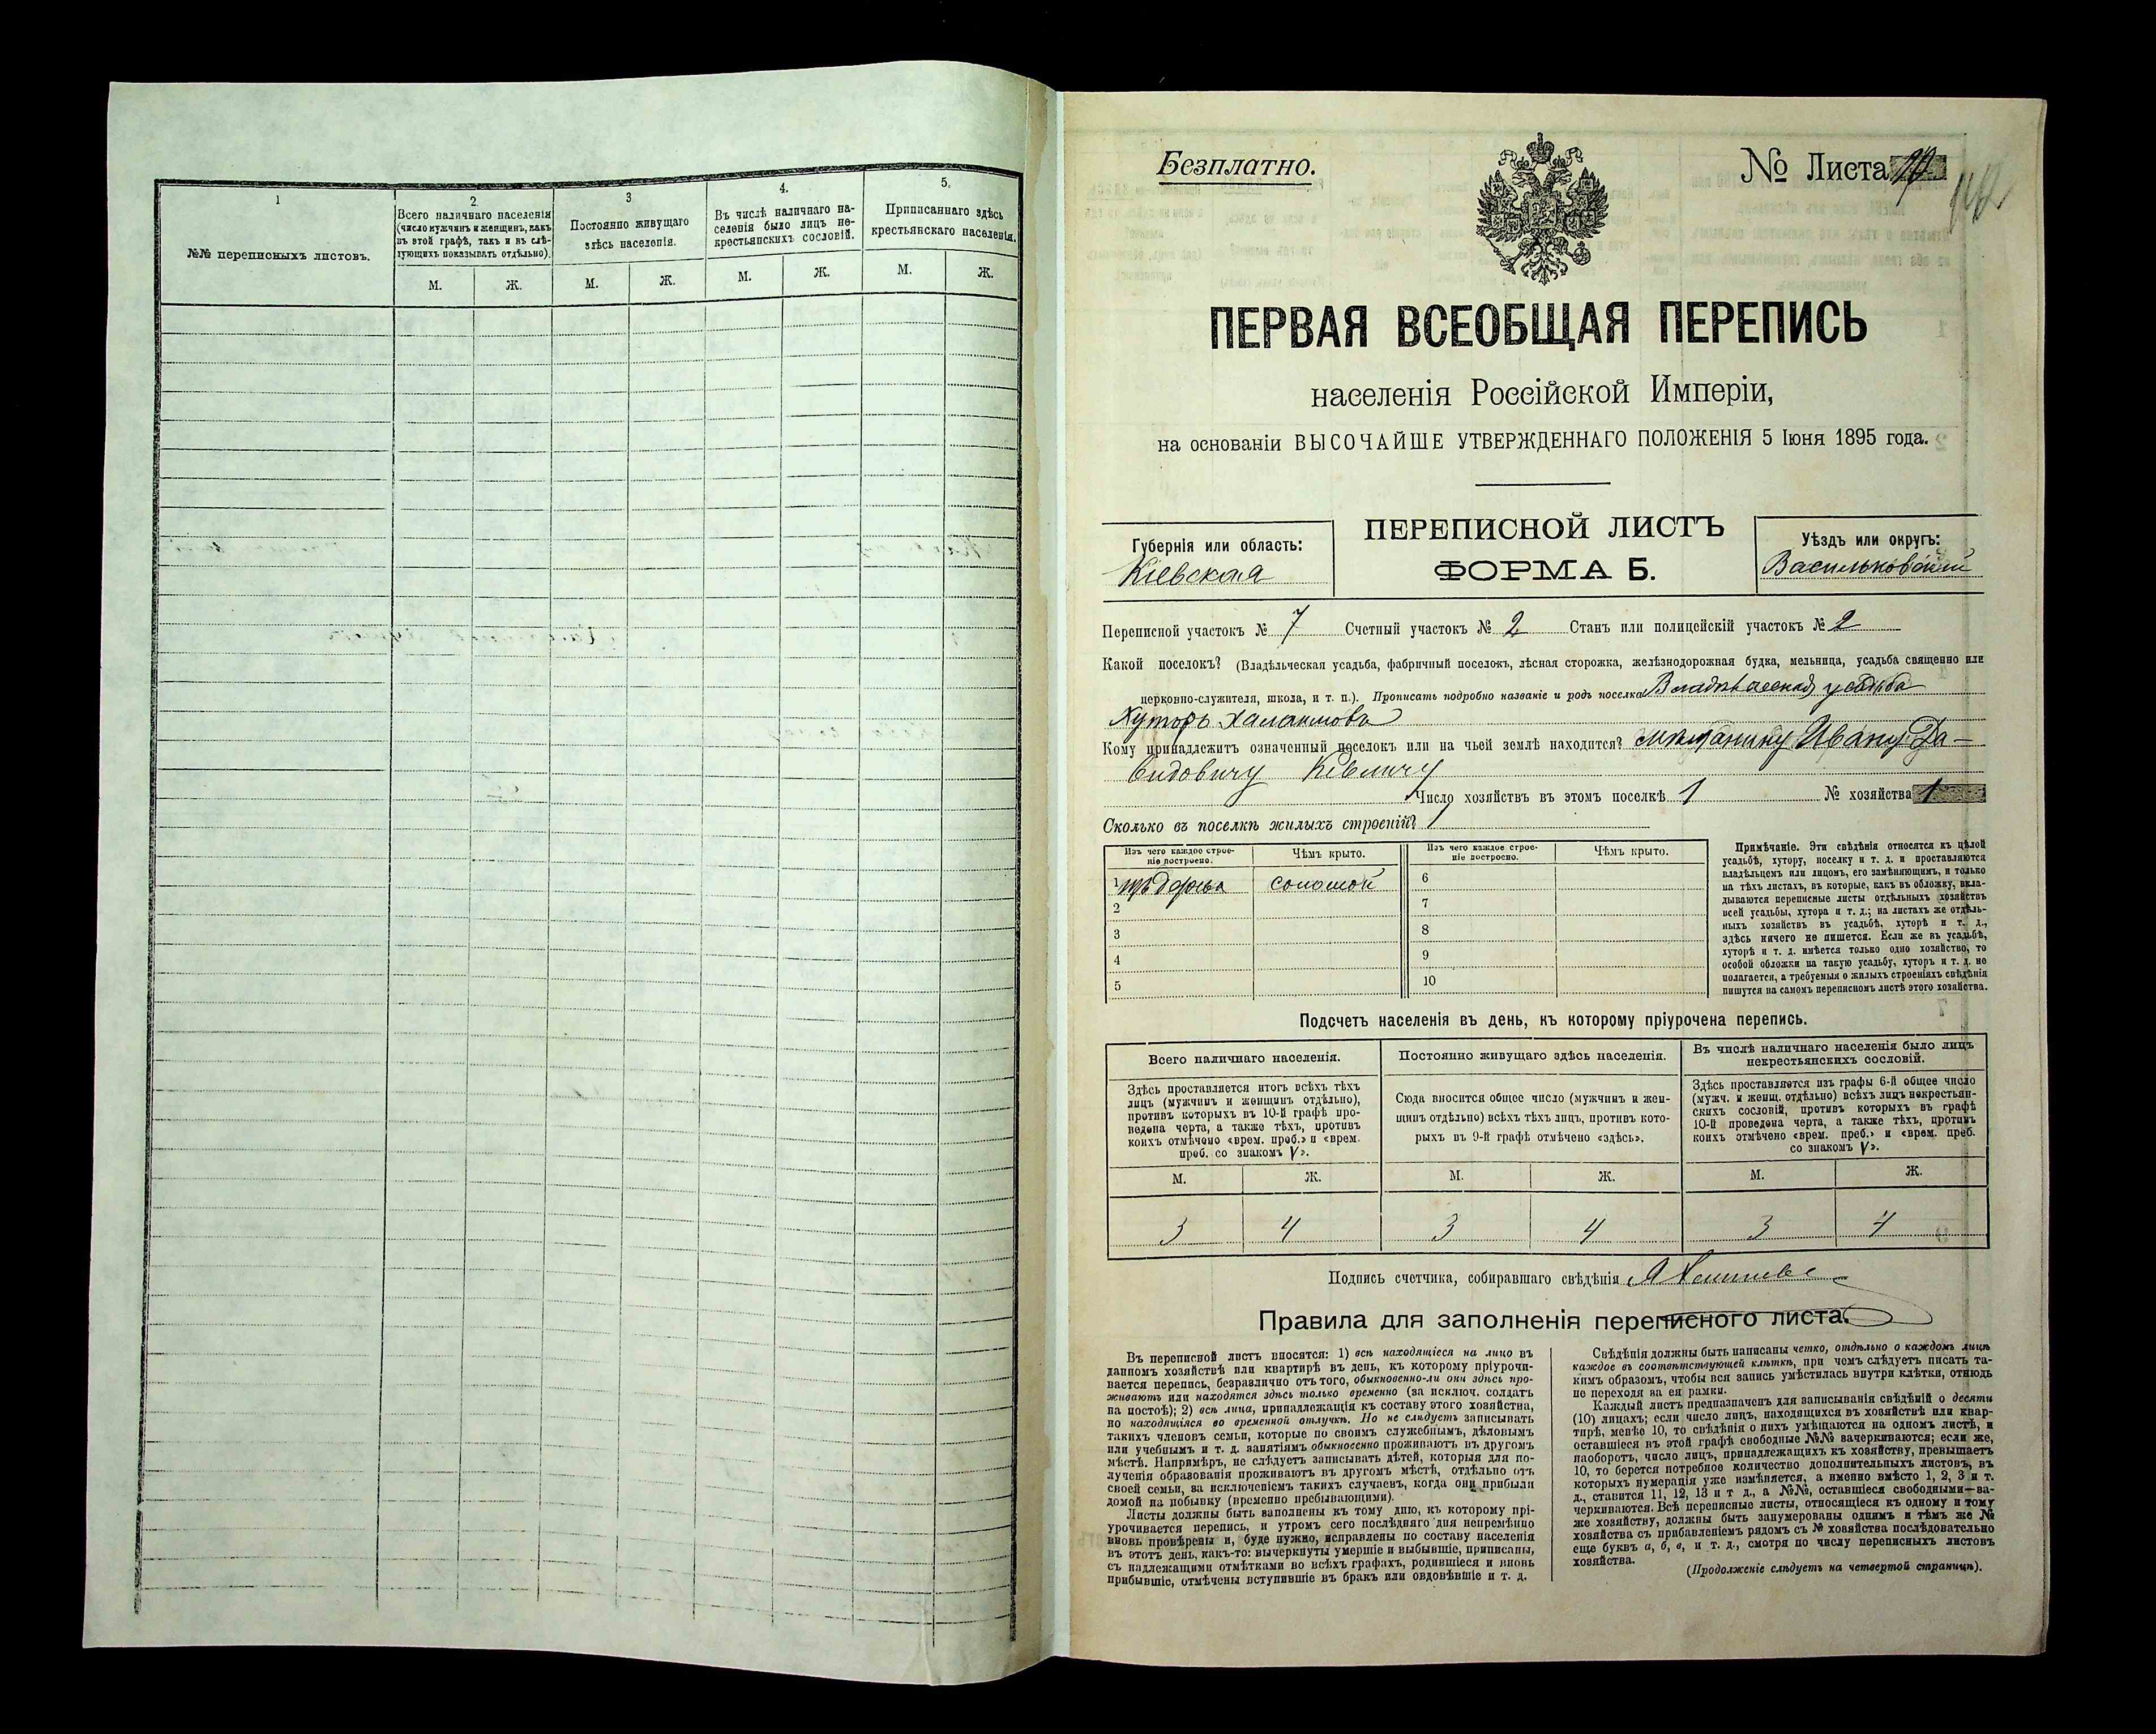 1
2
3
4.
5.
№№ переписныхъ листовъ.
Всего наличнаго населенія
(число мужчинъ и женщинъ, какъ
въ этой графѣ, такъ и въ слѣ-
дующихъ показывать отдѣльно).
Постоянно живущаго
здѣсь населенія.
Въ числѣ наличнаго на-
селенія было лицъ не-
крестьянскихъ сословій.
Приписаннаго здѣсь
крестьянскаго населенія.
М. Ж. М. Ж. М. Ж. М. Ж.
Безплатно.
№ Листа
ПЕРВАЯ ВСЕОБЩАЯ ПЕРЕПИСЬ
населенія Россійской Имперіи,
на основаніи ВЫСОЧАЙШЕ УТВЕРЖДЕННАГО ПОЛОЖЕНІЯ 5 Іюня 1895 года.
Губернія или область:
Кіевская
ПЕРЕПИСНОЙ ЛИСТЪ
ФОРМА Б.
Уѣздъ или округъ:
Васильковскій
Переписной участокъ № 7 Счетный участокъ № 2 Станъ или полицейскій участокъ № 2
Какой поселокъ? (Владѣльческая усадьба, фабричный поселокъ, лѣсная сторожка, желѣзнодорожная будка, мельница, усадьба священно или
церковно-служителя, школа, и т. п.). Прописать подробно названіе и родъ поселка Владѣльческая усадьба
Хуторъ
Кому принадлежитъ означенный поселокъ или на чьей землѣ находится? мѣщанину Ивану Да-
видовичу
Число хозяйствъ въ этомъ поселкѣ 1 № хозяйства 1
Сколько въ поселкѣ жилыхъ строеній? 1
Изъ чего каждое строе-
ніе построено.
Чѣмъ крыто.
Изъ чего каждое строе-
ніе построено.
Чѣмъ крыто.
1 изъ дерева соломой
2
3
4
5
6
7
8
9
10
Примѣчаніе. Эти свѣдѣнія относятся къ цѣлой
усадьбѣ, хутору, поселку и т. д. и проставляются
владѣльцемъ или лицомъ, его замѣняющимъ, и только
на тѣхъ листахъ, въ которые, какъ въ обложку, вкла-
дываются переписные листы отдѣльныхъ хозяйствъ
всей усадьбы, хутора и т. д.; на листахъ же отдѣль-
ныхъ хозяйствъ въ усадьбѣ, хуторѣ и т. д.,
здѣсь ничего не пишется. Если же въ усадьбѣ,
хуторѣ и т. д. имѣется только одно хозяйство, то
особой обложки на такую усадьбу, хуторъ и т. д. не
полагается, а требуемыя о жилыхъ строеніяхъ свѣдѣнія
пишутся на самомъ переписномъ листѣ этого хозяйства.
Подсчетъ населенія въ день, къ которому пріурочена перепись.
Всего наличнаго населенія.
Здѣсь проставляется итогъ всѣхъ тѣхъ
лицъ (мужчинъ и женщинъ отдѣльно),
противъ которыхъ въ 10-й графѣ про-
ведена черта, а также тѣхъ, противъ
коихъ отмѣчено «врем. преб.» и «врем.
преб. со знакомъ V».
Постоянно живущаго здѣсь населенія.
Сюда вносится общее число (мужчинъ и жен-
щинъ отдѣльно) всѣхъ тѣхъ лицъ, противъ кото-
рыхъ въ 9-й графѣ отмѣчено «здѣсь».
Въ числѣ наличнаго населенія было лицъ
некрестьянскихъ сословій.
Здѣсь проставляется изъ графы 6-й общее число
(мужч. и женщ. отдѣльно) всѣхъ лицъ некрестьян-
скихъ сословій, противъ которыхъ въ графѣ
10-й проведена черта, а также тѣхъ, противъ
коихъ отмѣчено «врем. преб.» и «врем. преб.
со знакомъ V».
М. Ж. М. Ж. М. Ж.
3 4 3 4 3 4
Подпись счетчика, собиравшаго свѣдѣнія
Правила для заполненія переписного листа.
Въ переписной листъ вносятся: 1) всѣ находящіеся на лицо въ
данномъ хозяйствѣ или квартирѣ въ день, къ которому пріурочи-
вается перепись, безразлично отъ того, обыкновенно-ли они здѣсь про-
живаютъ или находятся здѣсь только временно (за исключ. солдатъ
на постоѣ); 2) всѣ лица, принадлежащія къ составу этого хозяйства,
но находящіяся во временной отлучкѣ. Но не слѣдуетъ записывать
такихъ членовъ семьи, которые по своимъ служебнымъ, дѣловымъ
или учебнымъ и т. д. занятіямъ обыкновенно проживаютъ въ другомъ
мѣстѣ. Напримѣръ, не слѣдуетъ записывать дѣтей, которыя для по-
лученія образованія проживаютъ въ другомъ мѣстѣ, отдѣльно отъ
своей семьи, за исключеніемъ такихъ случаевъ, когда они прибыли
домой на побывку (временно пребывающими).
Листы должны быть заполнены къ тому дню, къ которому прі-
урочивается перепись, и утромъ сего послѣдняго дня непремѣнно
вновь провѣрены и, буде нужно, исправлены по составу населенія
въ этотъ день, какъ-то: вычеркнуты умершіе и выбывшіе, приписаны,
съ надлежащими отмѣтками во всѣхъ графахъ, родившіеся и вновь
прибывшіе, отмѣчены вступившіе въ бракъ или овдовѣвшіе и т. д.
Свѣдѣнія должны быть написаны четко, отдѣльно о каждомъ лицѣ
каждое въ соотвѣтствующей клѣткѣ, при чемъ слѣдуетъ писать та-
кимъ образомъ, чтобы вся запись умѣстилась внутри клѣтки, отнюдь
не переходя за ея рамки.
Каждый листъ предназначенъ для записыванія свѣдѣній о десяти
(10) лицахъ; если число лицъ, находящихся въ хозяйствѣ или квар-
тирѣ, менѣе 10, то свѣдѣнія о нихъ умѣщаются на одномъ листѣ, и
оставшіеся въ этой графѣ свободные №№ зачеркиваются; если же,
наоборотъ, число лицъ, принадлежащихъ къ хозяйству, превышаетъ
10, то берется потребное количество дополнительныхъ листовъ, въ
которыхъ нумерація уже измѣняется, а именно вмѣсто 1, 2, 3 и т.
д., ставится 11, 12, 13 и т д., а №№, оставшіеся свободными—за-
черкиваются. Всѣ переписные листы, относящіеся къ одному и тому
же хозяйству, должны быть занумерованы однимъ и тѣмъ же №
хозяйства съ прибавленіемъ рядомъ съ № хозяйства послѣдовательно
еще буквъ а, б, в, и т. д., смотря по числу переписныхъ листовъ
хозяйства.
(Продолженіе слѣдуетъ на четвертой страницѣ).